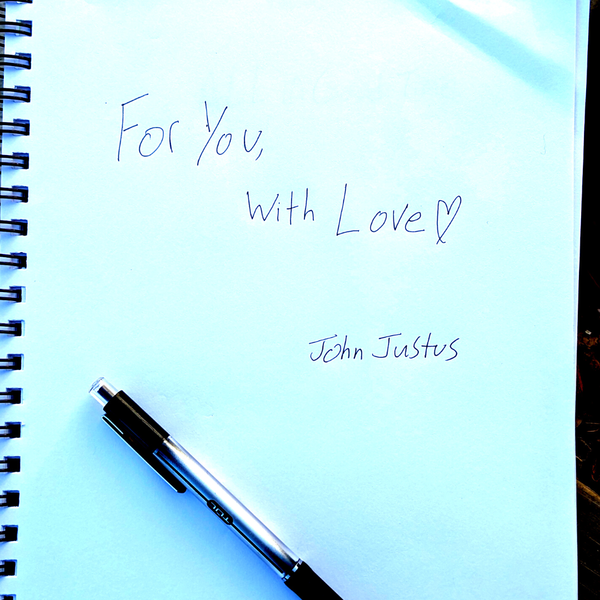 For You,
With Love♡
John Justus
TUL